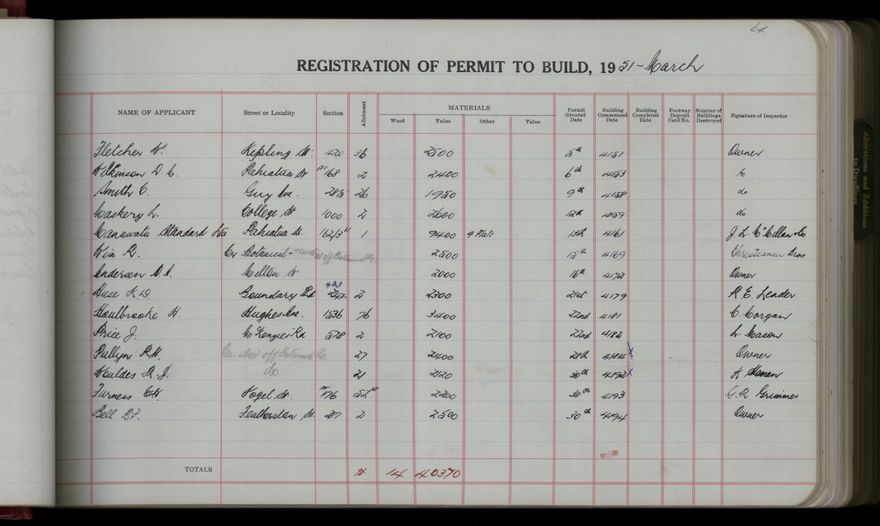 64
REGISTRATION OF PERMIT TO BUILD, 1951 - March
NAME OF APPLICANT Street or Locality Section Allotment MATERIALS Permit Granted Date Building Commenced Date Building Completed Date Footway Deposit Card No. Number of Buildings Destroyed Signature of Inspector
Wood Value Other Value
Fletcher K. Kipling St. 420 36 2500 5th 4151 Owner
Wilkinson D. C. Pahiatua St. 168 2 2400 6th 4153
Smith C. Guy Ave. 285 26 1950 9th 4158 do
Maskery L. College St. 1000 2 2600 12th 4159 do
Manawatu Standard Pahiatua St. 1 9400 4 Flats 13th 4161
Botanical 2500 15th 4169 Christiansen Bros
Anderson Milton St 2000 16th 4172 Owner
Huse K. W. Boundary Rd 421 2 2300 21st 4179 R. E. Leader
Houlbrooke H. Hughes Ave. 1536 76 3400 22nd 4181 C. Corgan
Price J. McKenzie Rd 578 2 2100 22nd 4182 L. Mason
Pullyn R.H. 27 2400 28th 4184 x Owner
Houldes R. J. do 21 2120 30th 4192 x
Furness C.H. Vogel St. 776 52 2200 30th 4193 G. R. Grimmer
Bell G.J. Featherston St. 287 2 2500 30th 4194 Owner
TOTALS 14 14 40370
Alterations and Additions to Dwellings